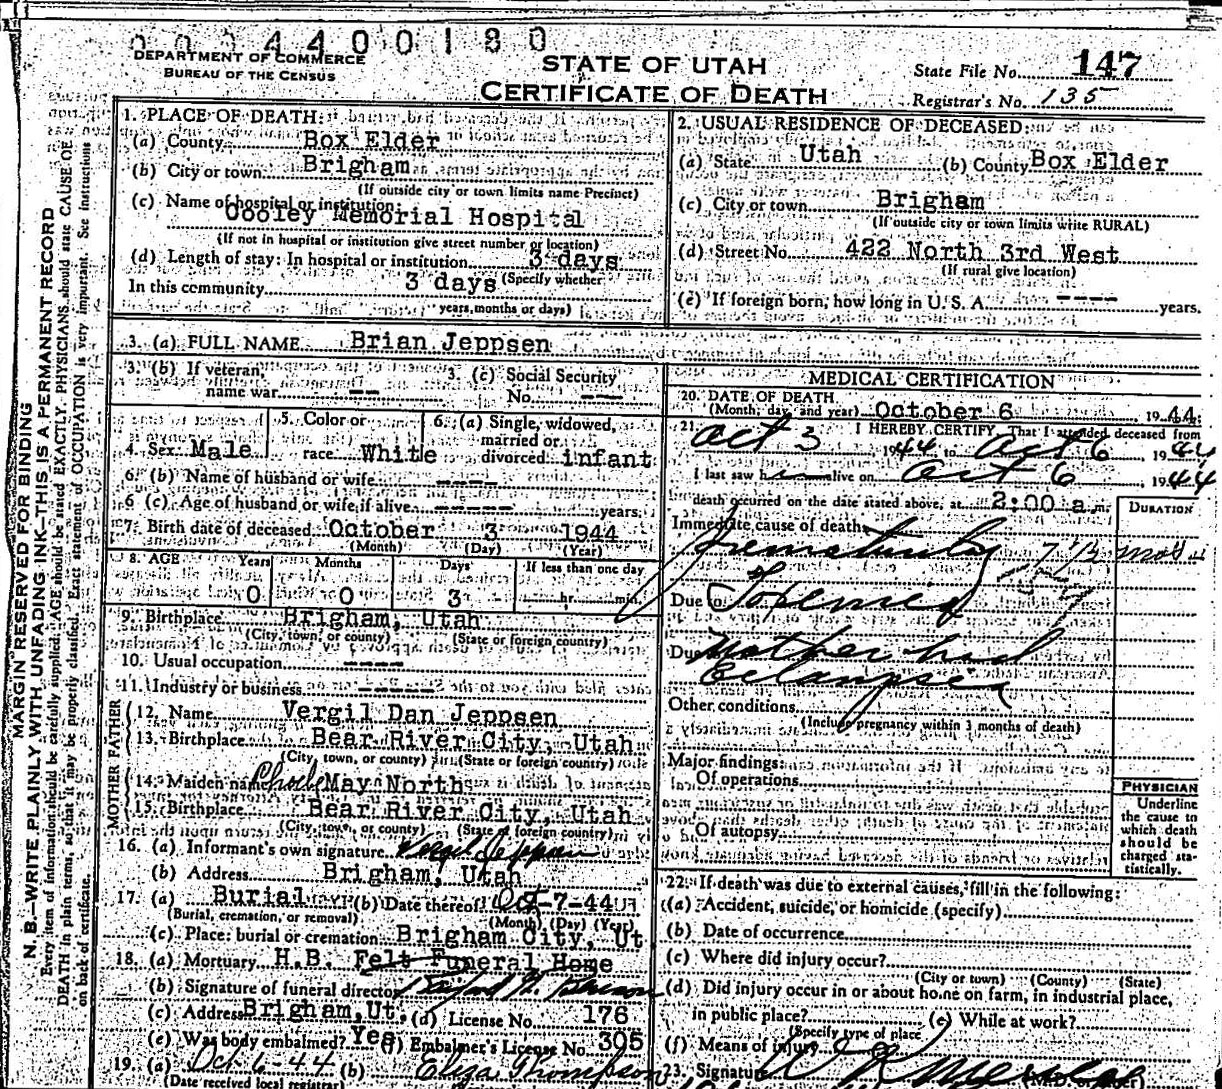 0004400180
DEPARTMENT OF COMMERCE
BUREAU OF THE CENSUS
STATE OF UTAH
CERTIFICATE OF DEATH
State File No. 147
Registrar's No. 135
MARGIN RESERVED FOR BINDING
N. B.—WRITE PLAINLY WITH UNFADING INK—THIS IS A PERMANENT RECORD
Every item of information should be carefully supplied. AGE should be stated EXACTLY. PHYSICIANS should state CAUSE OF
DEATH in plain terms, so that it may be properly classified. Exact statement of OCCUPATION is very important. See instructions
on back of certificate.
1. PLACE OF DEATH:
(a) County Box Elder
(b) City or town Brigham
(If outside city or town limits name Precinct)
(c) Name of hospital or institution:
Cooley Memorial Hospital
(If not in hospital or institution give street number or location)
(d) Length of stay: In hospital or institution 3 days
(Specify whether
In this community 3 days
years, months or days)
2. USUAL RESIDENCE OF DECEASED:
(a) State Utah (b) County Box Elder
(c) City or town Brigham
(If outside city or town limits write RURAL)
(d) Street No. 422 North 3rd West
(If rural give location)
(e) If foreign born, how long in U. S. A. ---- years.
3. (a) FULL NAME Brian Jeppsen
3. (b) If veteran, name war -- 3. (c) Social Security No. ---
4. Sex Male 5. Color or race White 6. (a) Single, widowed, married or divorced infant
6. (b) Name of husband or wife ----
6 (c) Age of husband or wife, if alive ----- years
7. Birth date of deceased October 3 1944
(Month) (Day) (Year)
8. AGE Years Months Days If less than one day
0 0 3 hr. min.
9. Birthplace Brigham, Utah
(City, town, or county) (State or foreign country)
10. Usual occupation ----
11. Industry or business -----
FATHER
12. Name Vergil Dan Jeppsen
13. Birthplace Bear River City, Utah
(City, town, or county) (State or foreign country)
MOTHER
14. Maiden name May North
15. Birthplace Bear River City, Utah
(City, town, or county) (State or foreign country)
16. (a) Informant's own signature Vergil Jeppsen
(b) Address Brigham, Utah
17. (a) Burial (b) Date thereof Oct-7-44
(Burial, cremation, or removal) (Month) (Day) (Year)
(c) Place: burial or cremation Brigham City, Ut
18. (a) Mortuary H.B. Felt Funeral Home
(b) Signature of funeral director
(c) Address Brigham, Ut. (d) License No. 176
(e) Was body embalmed? Yes (f) Embalmer's License No. 305
19. (a) Oct 6-44 (b) Eliza Thompson
(Date received local registrar)
MEDICAL CERTIFICATION
20. DATE OF DEATH
(Month, day, and year) October 6, 1944
21. I HEREBY CERTIFY, That I attended deceased from
Oct 3 1944 to Oct 6, 1944
I last saw him alive on Oct 6, 1944
death occurred on the date stated above, at 2:00 a.m.
DURATION
Immediate cause of death
Prematurity 7 1/2 mos
Due to Toxemia
Due Mother had
Eclampsia
Other conditions
(Include pregnancy within 3 months of death)
Major findings:
Of operations
Of autopsy
PHYSICIAN
Underline
the cause to
which death
should be
charged sta-
tistically.
22. If death was due to external causes, fill in the following:
(a) Accident, suicide, or homicide (specify)
(b) Date of occurrence
(c) Where did injury occur?
(City or town) (County) (State)
(d) Did injury occur in or about home on farm, in industrial place,
in public place? (e) While at work?
(Specify type of place
(f) Means of injury
23. Signature